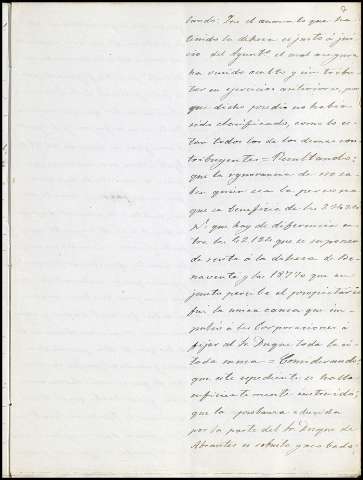 tando: Que el aumento que ha
tenido la dehesa es justo á jui
cio del Ayunt.º el cual asegura
ha venido oculto y sin tribu
tar en ejercicios anteriores, por
que dicho predio no habia
sido clasificado, como lo es
tan todos los de los demas con
tribuyentes = Resultando:
que la ygnorancia de no sa
ber quien sea la persona
que se beneficia de los
que hay de diferencia en
tre las que se suponen
de renta á la dehesa de Be
navente y las que en
junto percibe el propietario
fue la unica causa que im
pulsó á las Corporaciones á
fijar al Sr. Duque toda la ci
tada suma = Considerando:
que este espediente se halla
suficientemente instruido;
que la probanza aducida
por la parte del Sr. Duque de
Abrantes es robusta y acabada;